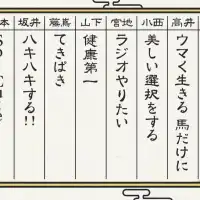 高井
ウマく生きる 馬だけに
小西
美しい選択をする
宮地
ラジオやりたい
山下
健康第一
藤嶌
てきぱき
坂井
ハキハキする!!
本